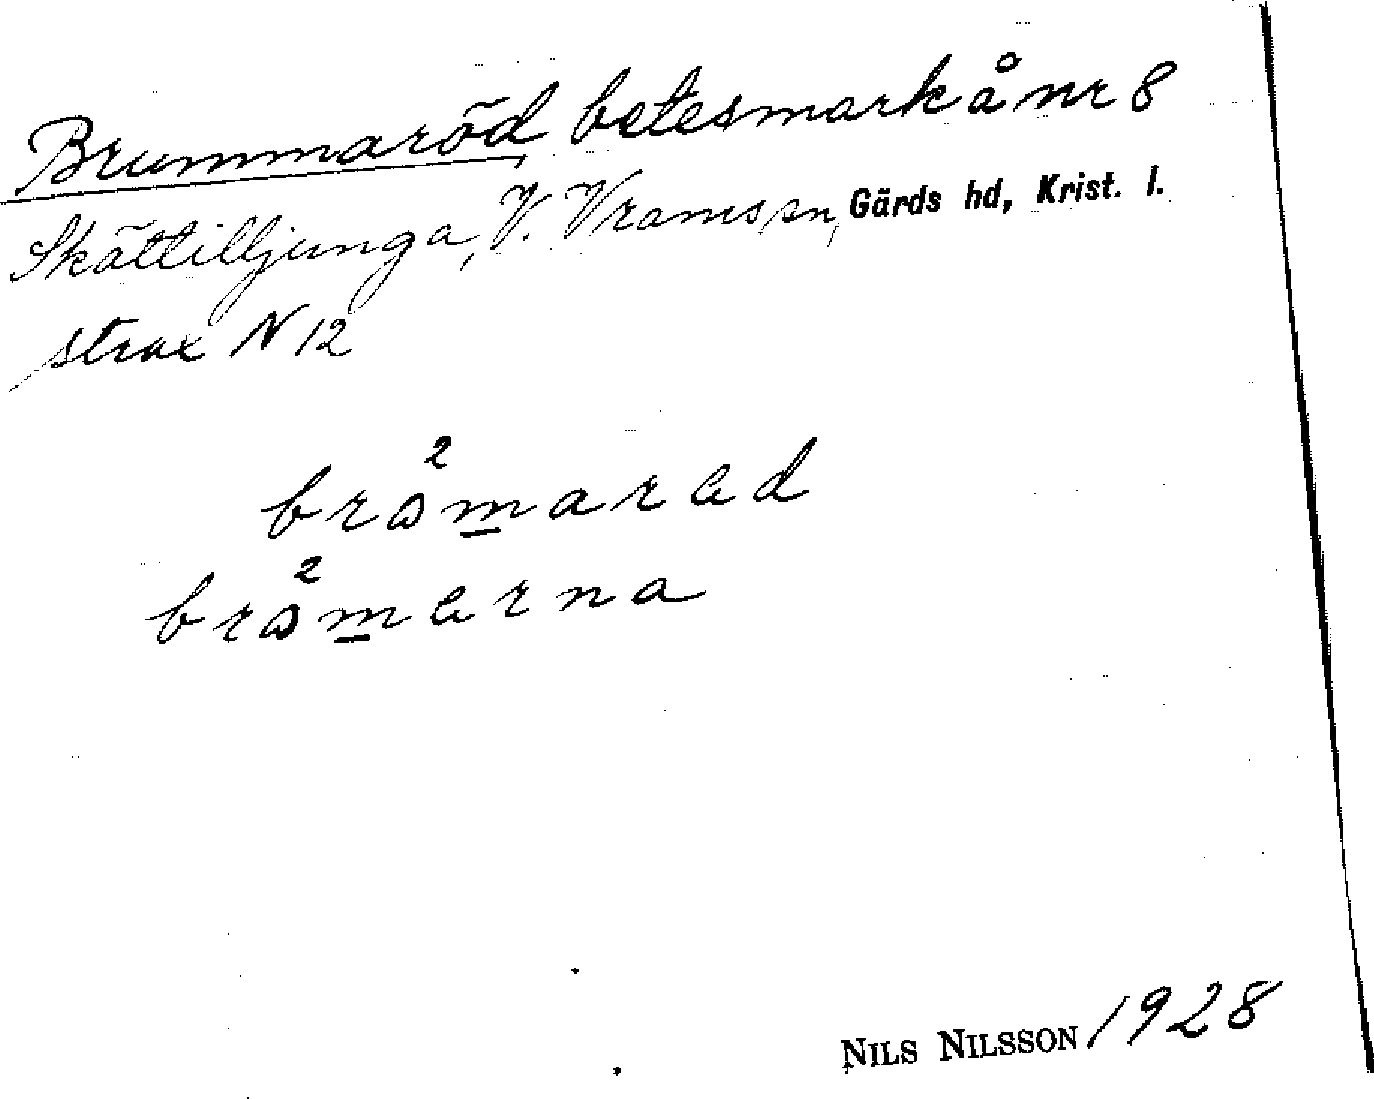 Brummaröd betesmark å nr 8
Skättilljunga, V. Vrams sn, Gärds hd, Krist. l.
strax N 12
brå²marad
brå²marna
NILS NILSSON 1928